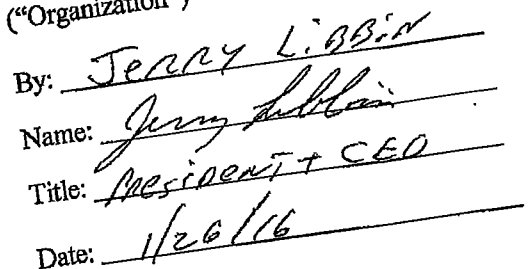 ("Organization")
By: JERRY LiBBiN
Name: Jerry Libbin
Title: PresiDenT + CEO
Date: 1/26/16